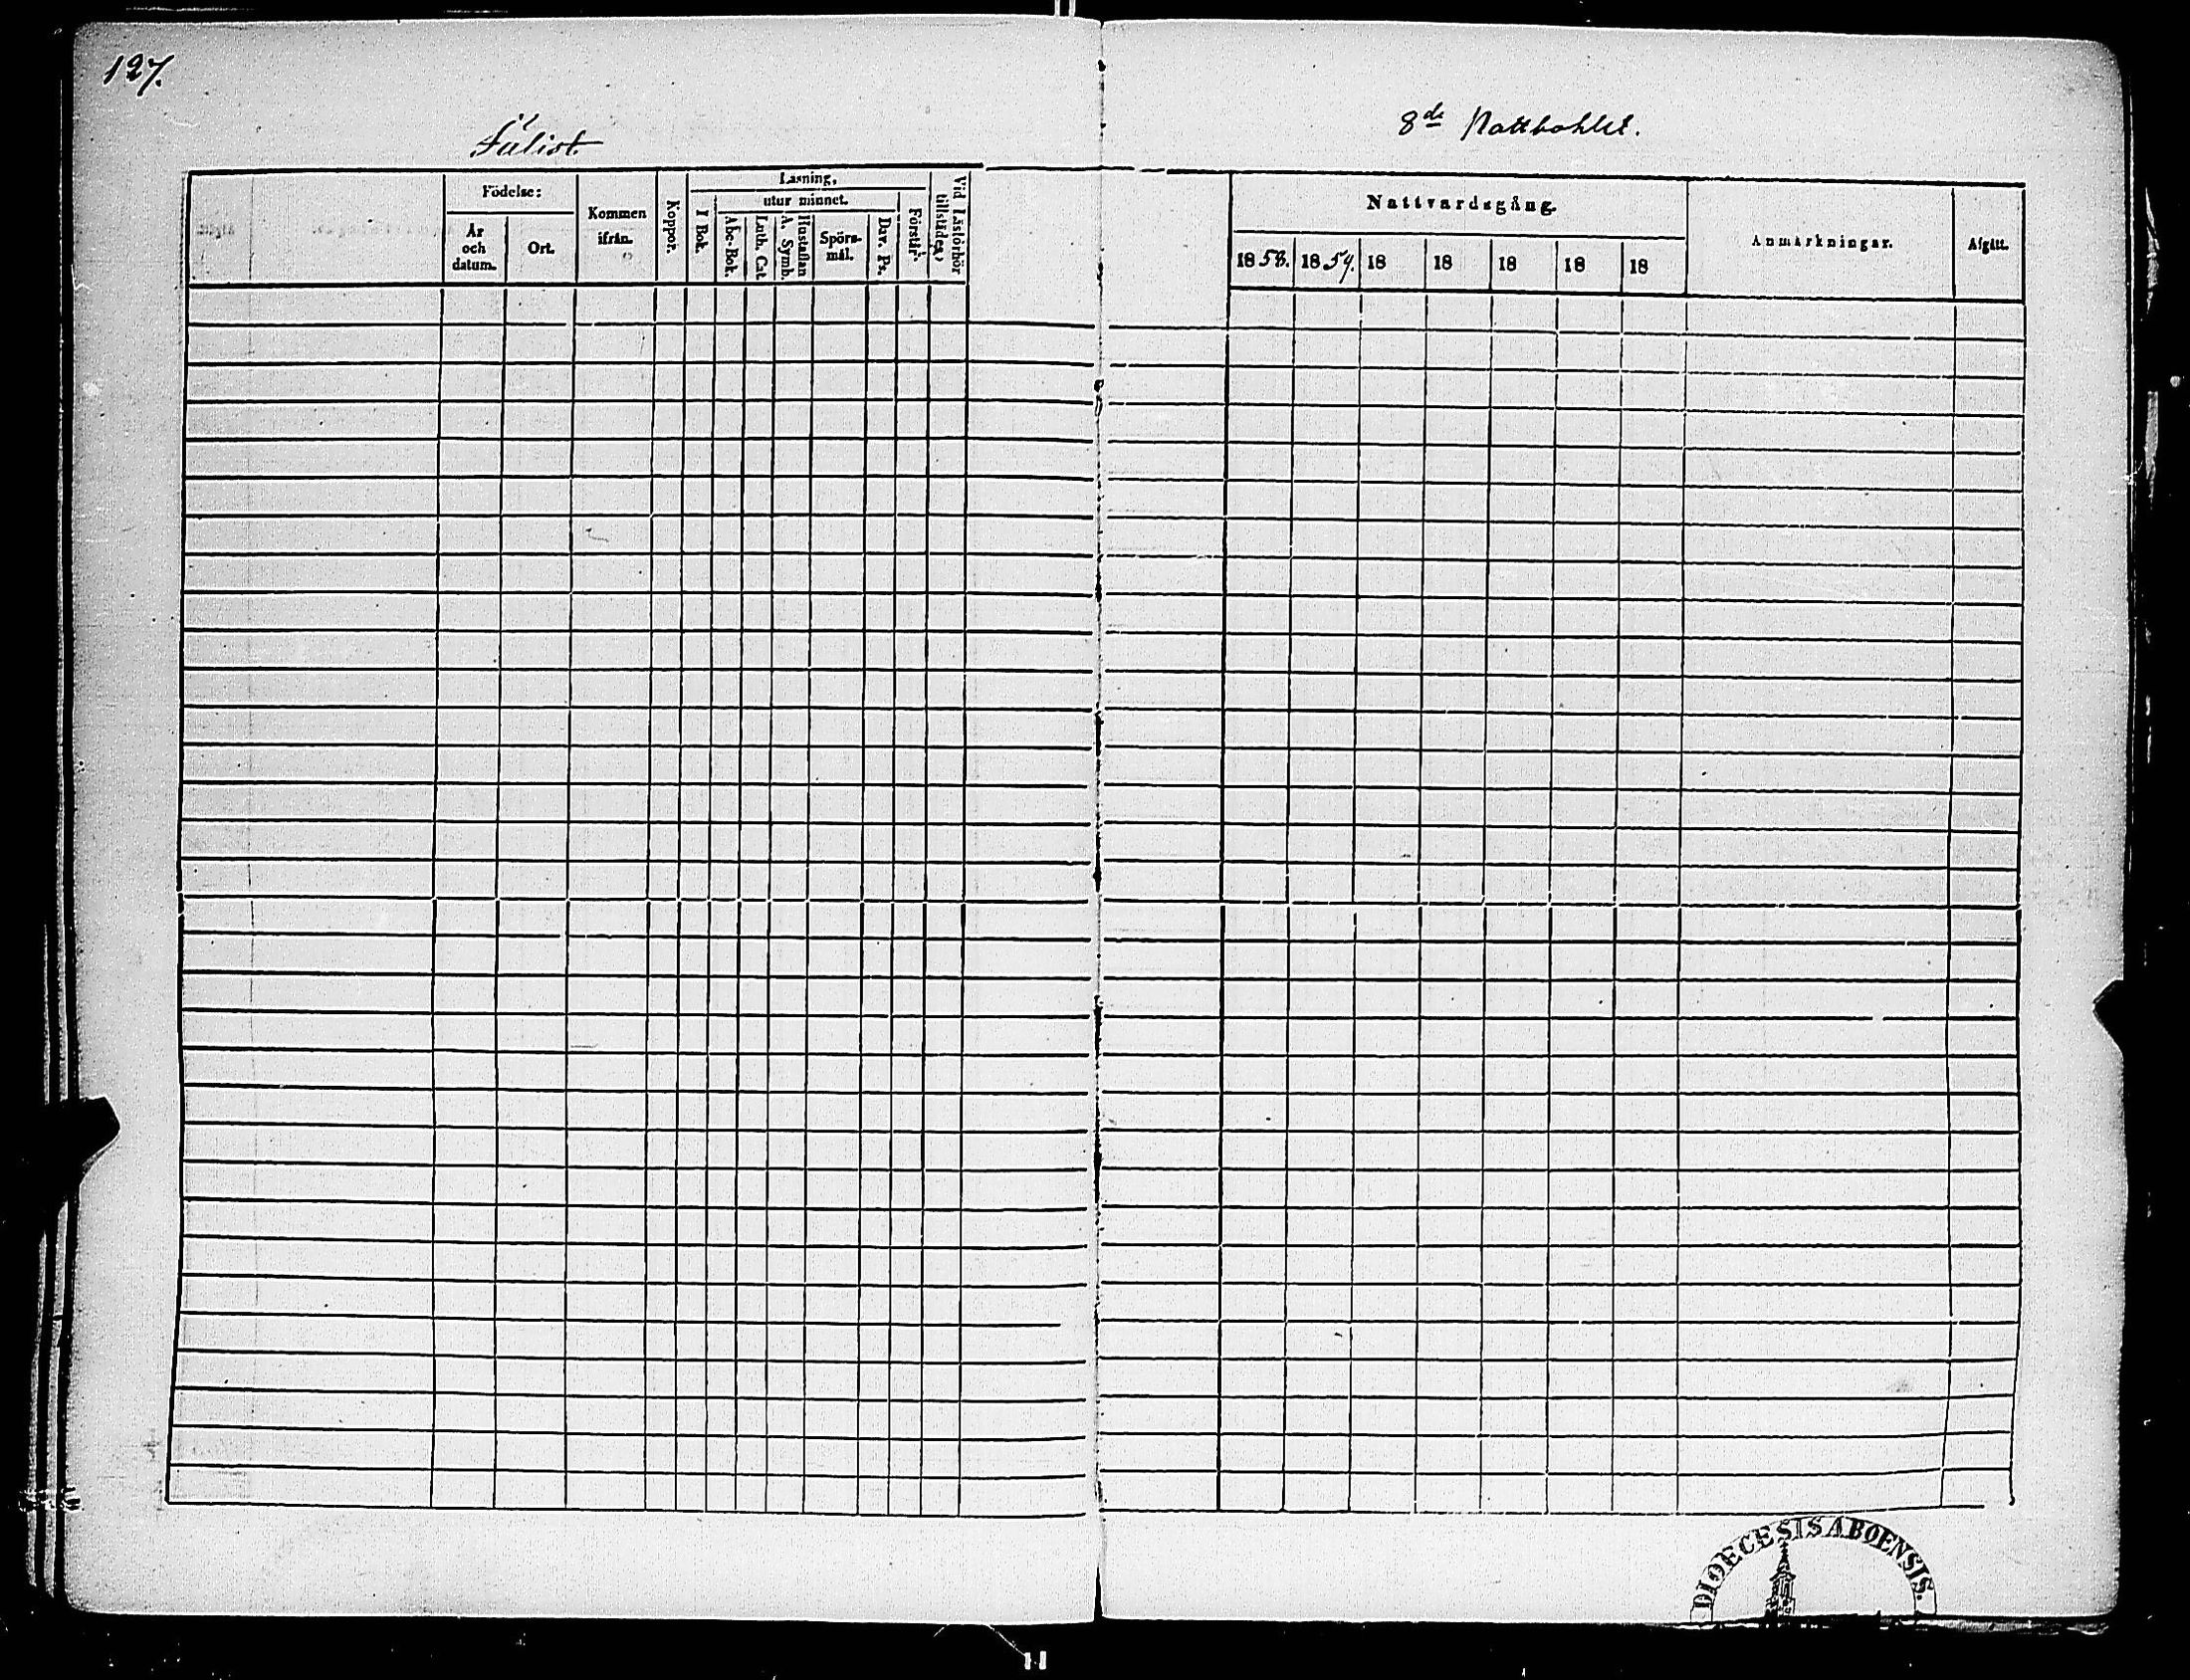 127.
8de Rottbohlet.
Födelse:
År
och
datum.
Ort.
Kommen
ifrån.
Koppor.
Läsning,
utur minnet.
I Bok.
Abc-Bok.
Luth. Cat.
Hustaflan
A. Symb.
Spörs-
mål.
Dav. Ps.
Förstår.
Vid Läsförhör
tillstädes.
Nattvardsgång.
1853.
1854.
18
18
18
18
18
Anmärkningar.
Afgått.
DIOECESIS ABOENSIS.